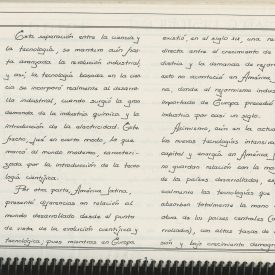 Esta separación entre la ciencia y
la tecnología, se mantuvo aún has-
ta avanzada la revolución industrial,
y así, la tecnología basada en la cien-
cia se incorporó realmente al desarro-
llo industrial, cuando surgió la gran
demanda de la industria química y la
introducción de la electricidad. Este
hecho fué en cierto modo, lo que
marcó al mundo moderno caracteri-
zado por la introducción de la tecno-
logía científica.
Por otra parte, América Latina,
presentó diferencias en relación al
mundo desarrollado desde el punto
de vista de la evolución científica y
tecnológica, pues mientras en Europa
existió, en el siglo XIX, una
directa entre el crecimiento de
dustria y la demanda de
esto no aconteció en América
na, donde el reformismo
importado de Europa precedió
industria por casi un siglo.
Asimismo, aún en la actua
las nuevas tecnologías intensiv
capital y energía en América
no guardan relación con la ma
de los países desarrollados,
cialmente las tecnologías que
absorben totalmente la mano
obra de los países centrales (
rrollados), con altas tasas de
sión y bajo crecimiento demog